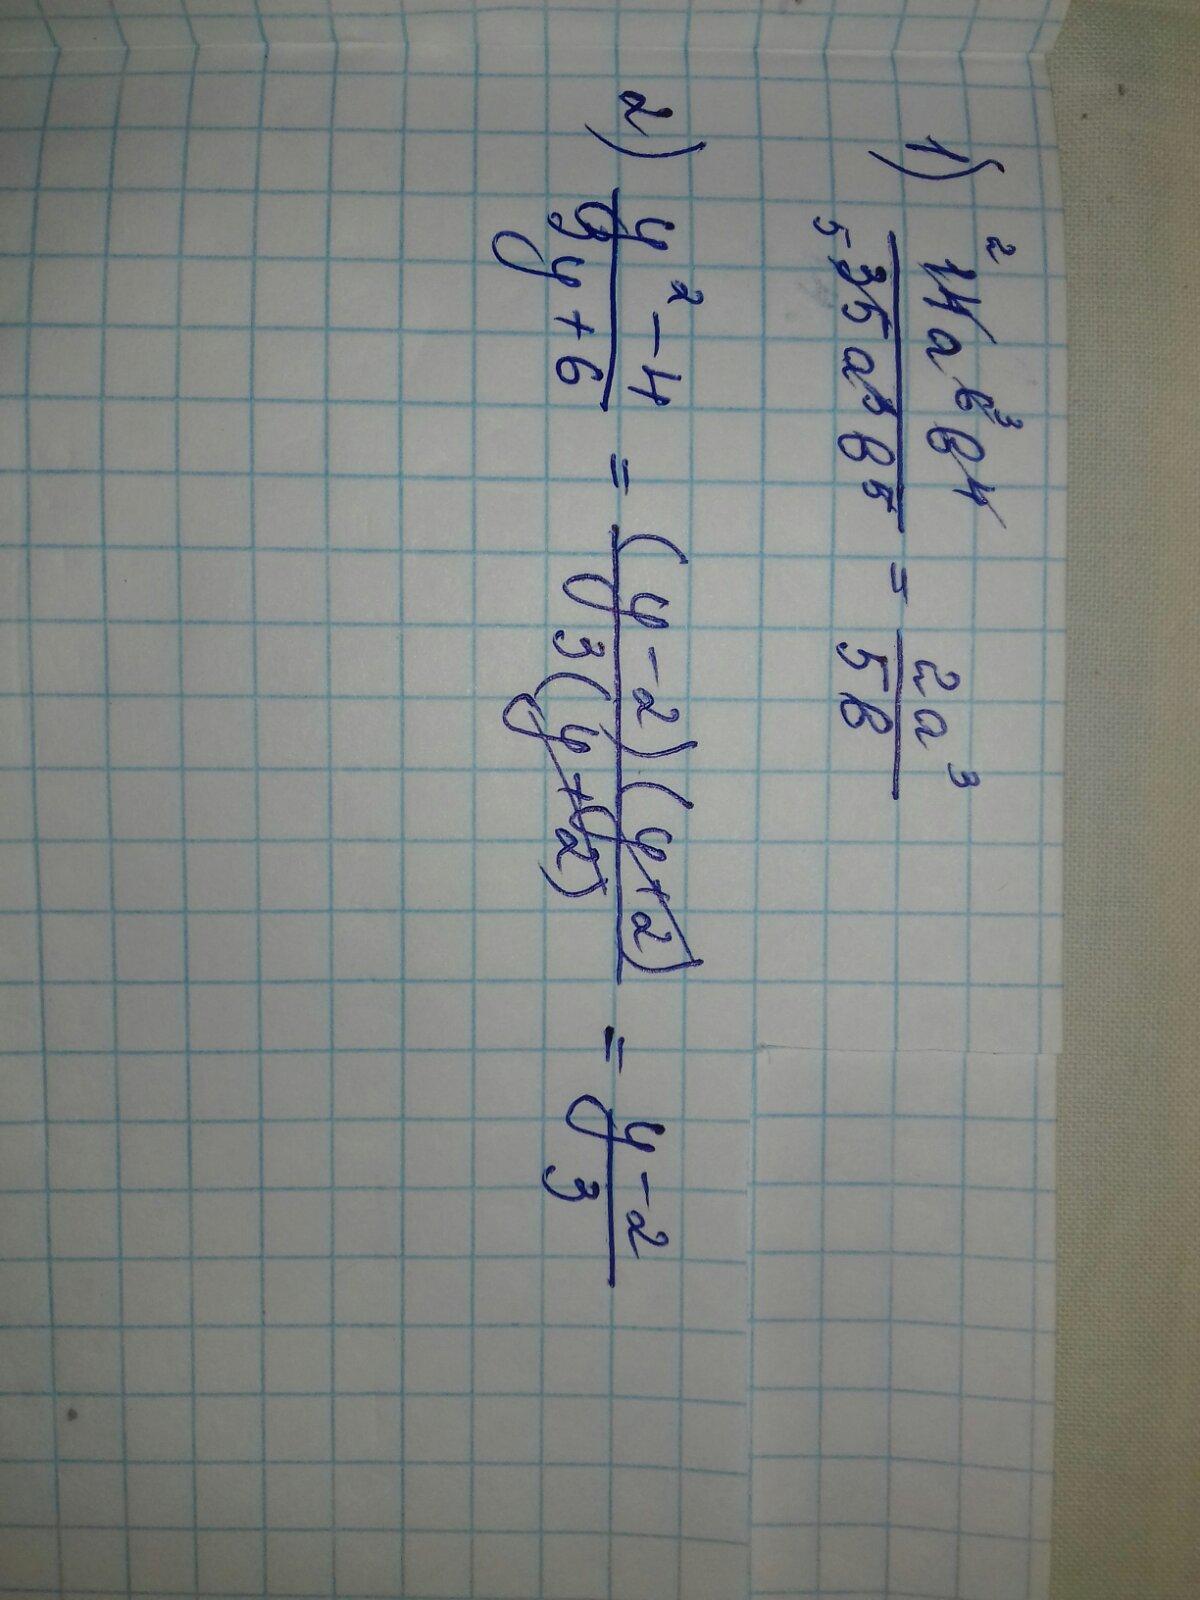 1) ²14a⁶ ³b⁴ / ₅35a³b⁵ = 2a³ / 5b
2) y² - 4 / 3y + 6 = (y - 2)(y + 2) / 3(y + 2) = y - 2 / 3